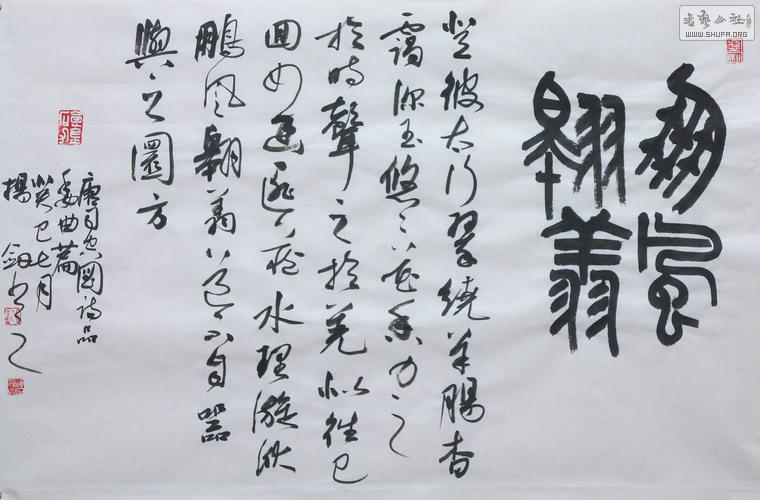 鵬風
翱翔
登彼太行翠繞羊腸杳
靄流玉悠悠花香力之
於時聲之於羌似往已
回如幽匪藏水理漩洑
鵬風翱翔道不自器
與之圓方
唐司空圖詩品
委曲篇
癸巳七月
楊劍書之
書藝公社
WWW.SHUFA.ORG